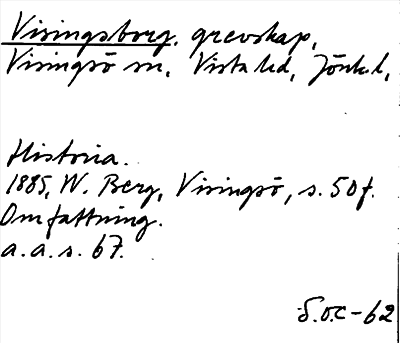 Visingsborg. grevskap,
Visingsö sn, Vista hd, Jönk. l,
Historia.
1885, W. Berg, Visingsö, s. 50 f.
Omfattning.
a. a. s. 67.
S.O.C-62